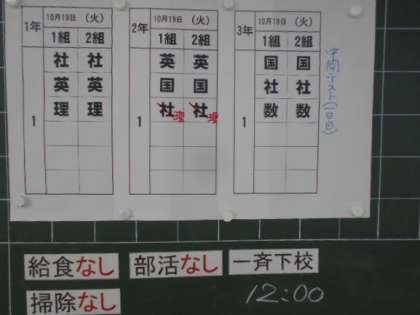 1年 10月19日 (火)
1組 2組
社 社
英 英
理 理
1
2年 10月19日 (火)
1組 2組
英 英
国 国
社 社
理 理
1
3年 10月19日 (火)
1組 2組
国 国
社 社
数 数
1
中間テスト(1日目)
給食なし 部活なし 一斉下校
掃除なし 12:00